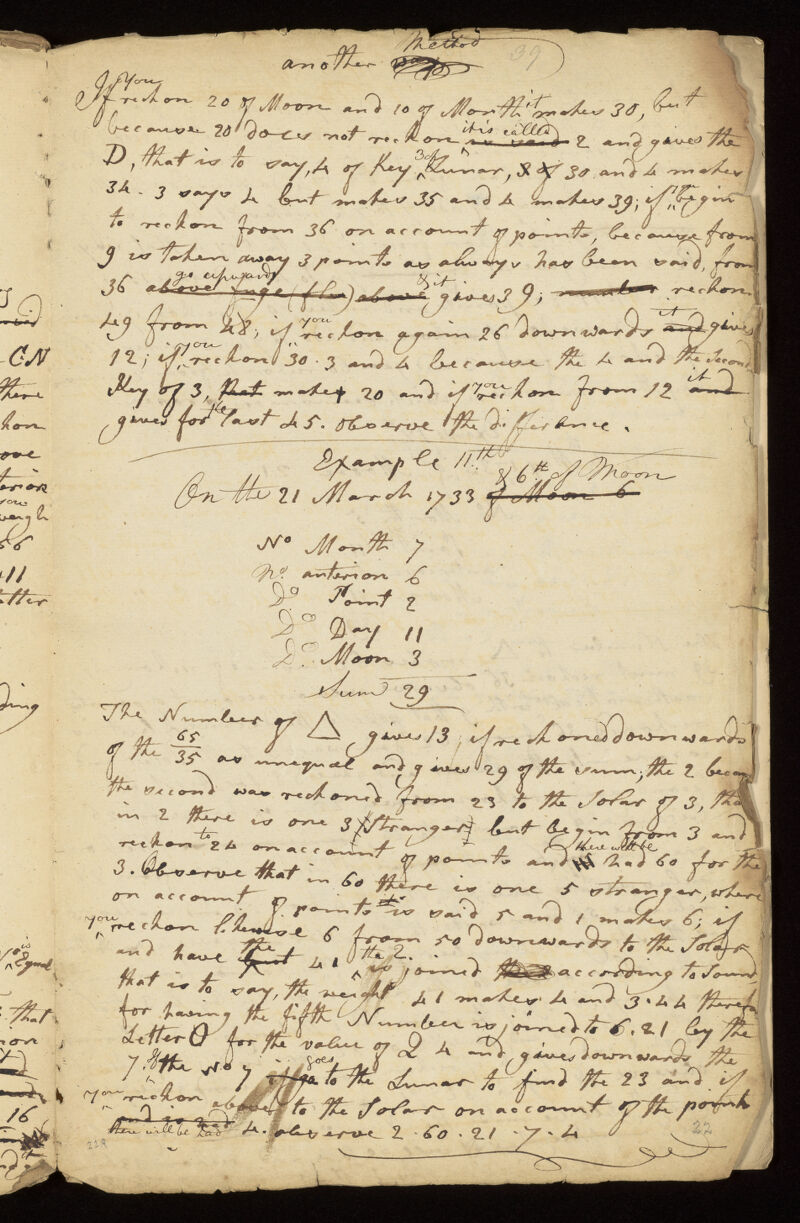 another Method
39
If you reckon 20 of Moon and 10 of Month it makes 30, but
because 20 does not reckon it is called 2 and gives the
D, that is to say, 4 of Key 3 of Lunar, 30 and 4 makes
34. 3 says 4 but makes 35 and 4 makes 39; if begin
to reckon from 36 on account of points, because from
9 is taken away 3 points as always has been said, from
36 go upwards & it gives 39; reckon
49 from 48; if you reckon again 26 downwards it gives
12; if you reckon 30. 3 and 4 because the 4 and the second
Key of 3, make 20 and if you reckon from 12 it
gives for the last 45. observe the difference.
Example 11th
On the 21 March 1733 & 6th of Moon
No Month 7
No. anterior 6
Do Point 2
Do Day 11
Do. Moon 3
Sum 29
The Number of △ gives 13, if reckoned downwards
of the 65/35 as unequal and gives 29 of the sum; the 2 becau
the second was reckoned from 23 to the Solar of 3, tha
in 2 there is one 3 (Stranger) but begin from 3 and
reckon to 24 on account of points and there will be had 60 for the
3. Observe that in 60 there is one 5 stranger, where
on account of points is said 5 and 1 makes 6; if
you reckon likewise 6 from 50 downwards to the Solar
and have the 41 the 2 is joined according to Sound,
that is to say, the weight 41 makes 4 and 3. 44 theref
for having the fifth Number is joined to 6. 21 by the
Letter O for the value of Q 4 and gives downwards the
7. If the No 7 goes to the Lunar to find the 23 and if
you reckon above to the Solar on account of the points
there will be had 4. observe 2. 60. 21. 7. 4
22